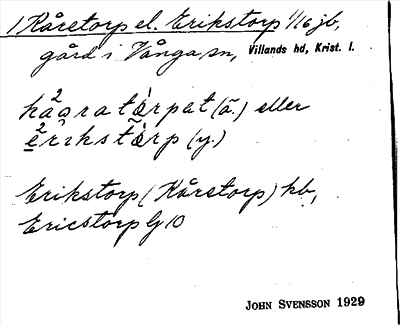 1 Kåretorp el. Erikstorp 1/16 jb,
gård i Vånga sn, Villands hd, Krist. l.
(ã.) eller
(y.)
Erikstorp (Kåretorp) kb,
Ericstorp Gj 10
JOHN SVENSSON 1929